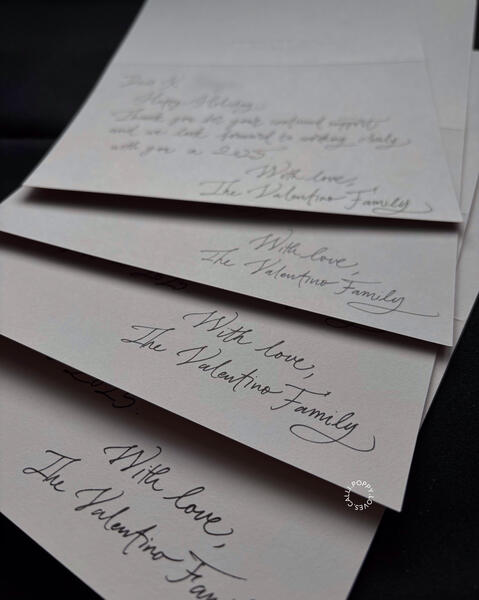 Dear K
Happy Holidays,
Thank you for your continued support
and we look forward to working
with you in 2025
With love,
The Valentino Family
With love,
The Valentino Family
2025
With love,
The Valentino Family
2025.
With love,
The Valentino Fam
CALLI POPPY LOVES